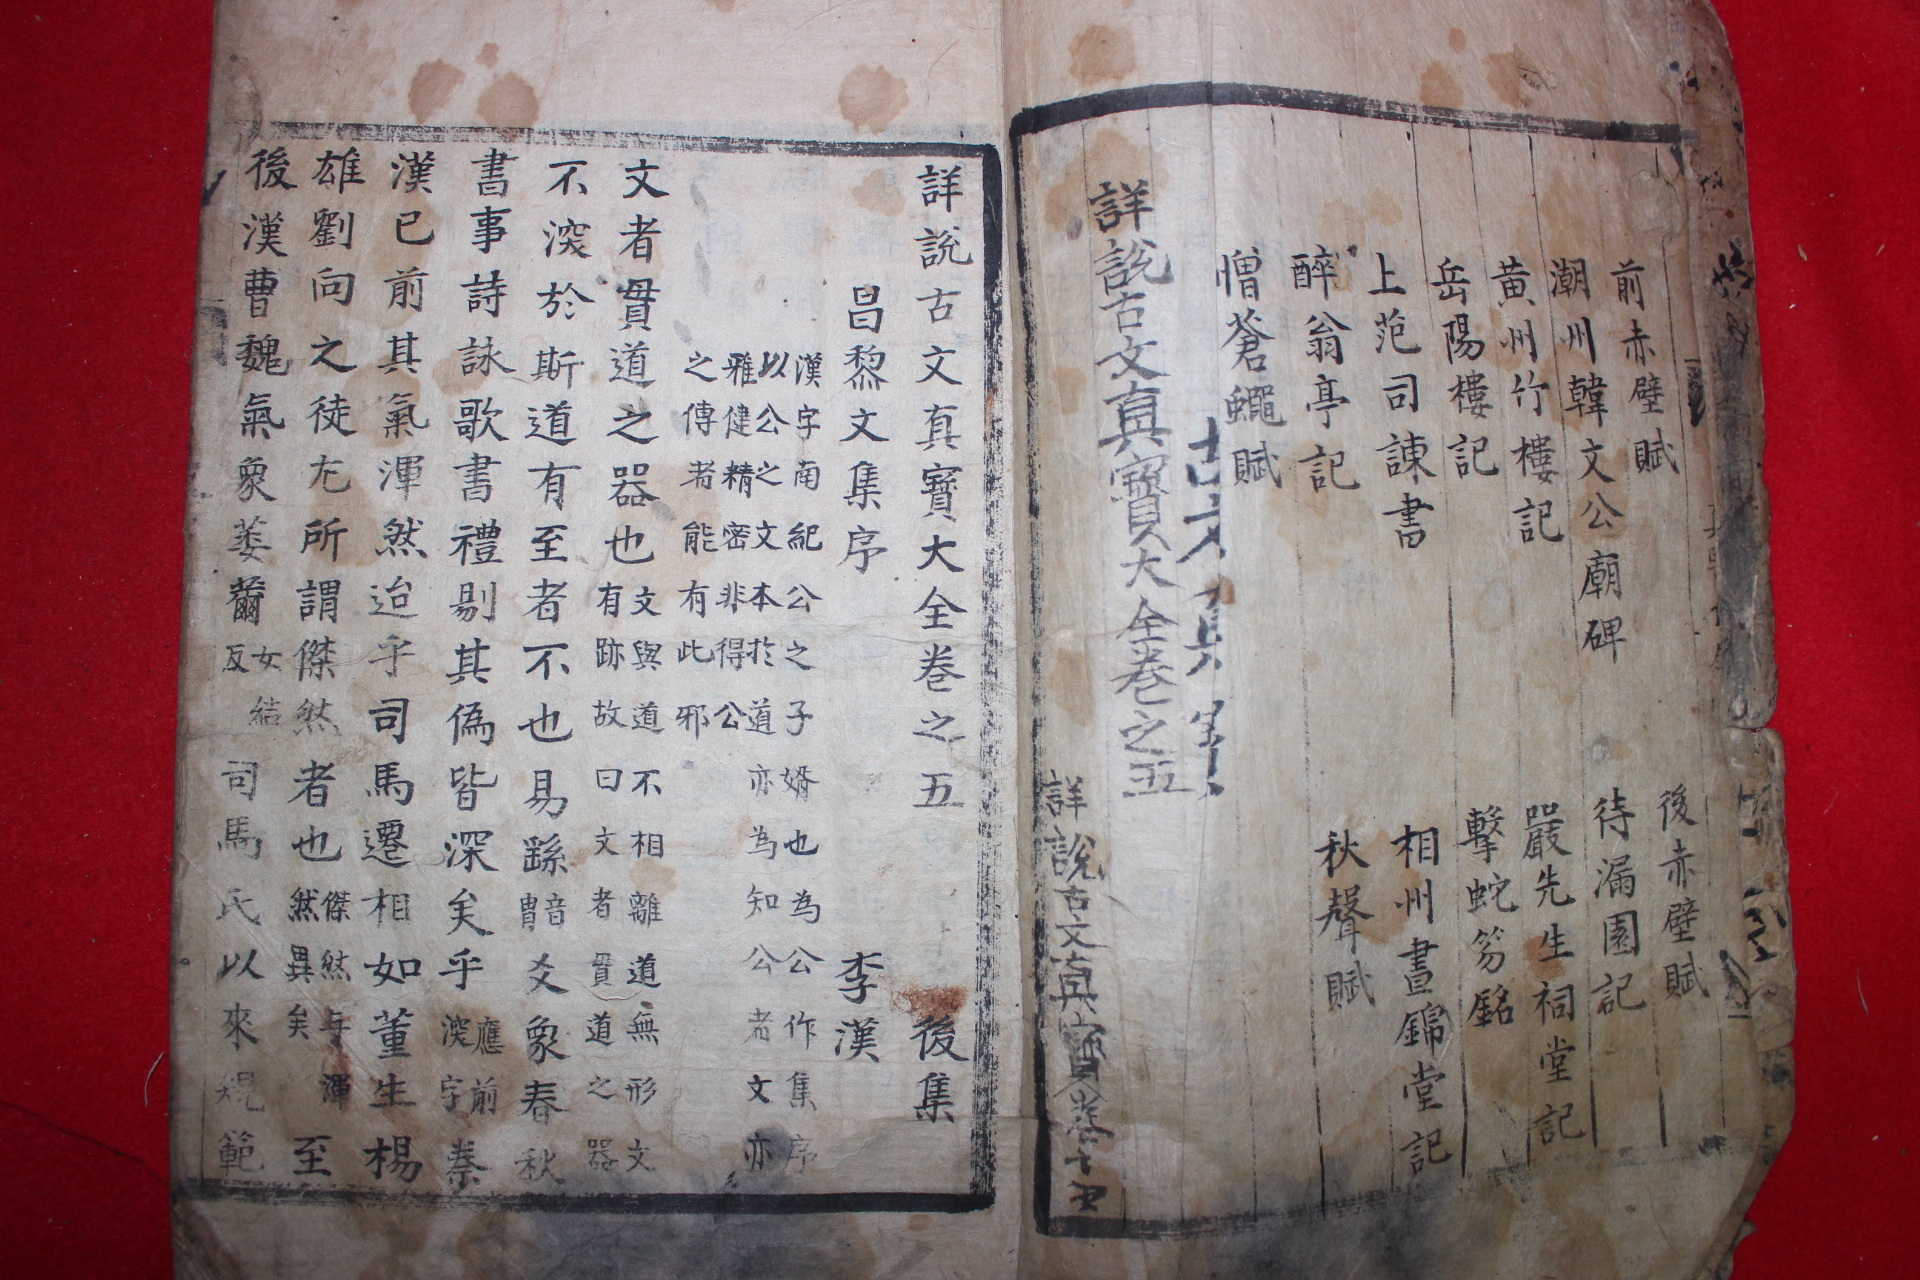 前赤壁賦 後赤壁賦
潮州韓文公廟碑 待漏園記
黃州竹樓記 嚴先生祠堂記
岳陽樓記 擊蛇笏銘
上范司諫書 相州晝錦堂記
醉翁亭記 秋聲賦
憎蒼蠅賦
古文真
詳說古文真寶大全卷之五
詳說古文真寶
詳說古文真寶大全卷之五 後集
昌黎文集序 李漢
漢字南紀公之子婿也為公作集序
以公之文本於道亦為知公者文亦
雅健精密非得公
之傳者能有此邪
文者貫道之器也
文與道不相離道無形文
有跡故曰文者貫道之器
不深於斯道有至者不也易繇
音
胄
爻象春秋
書事詩詠歌書禮剔其偽皆深矣乎
應前
深字
秦
漢已前其氣渾然迨乎司馬遷相如董生楊
雄劉向之徒尤所謂傑然者也
傑然與渾
然異矣
至
後漢曹魏氣象萎薾
女結
反
司馬氏以來規範